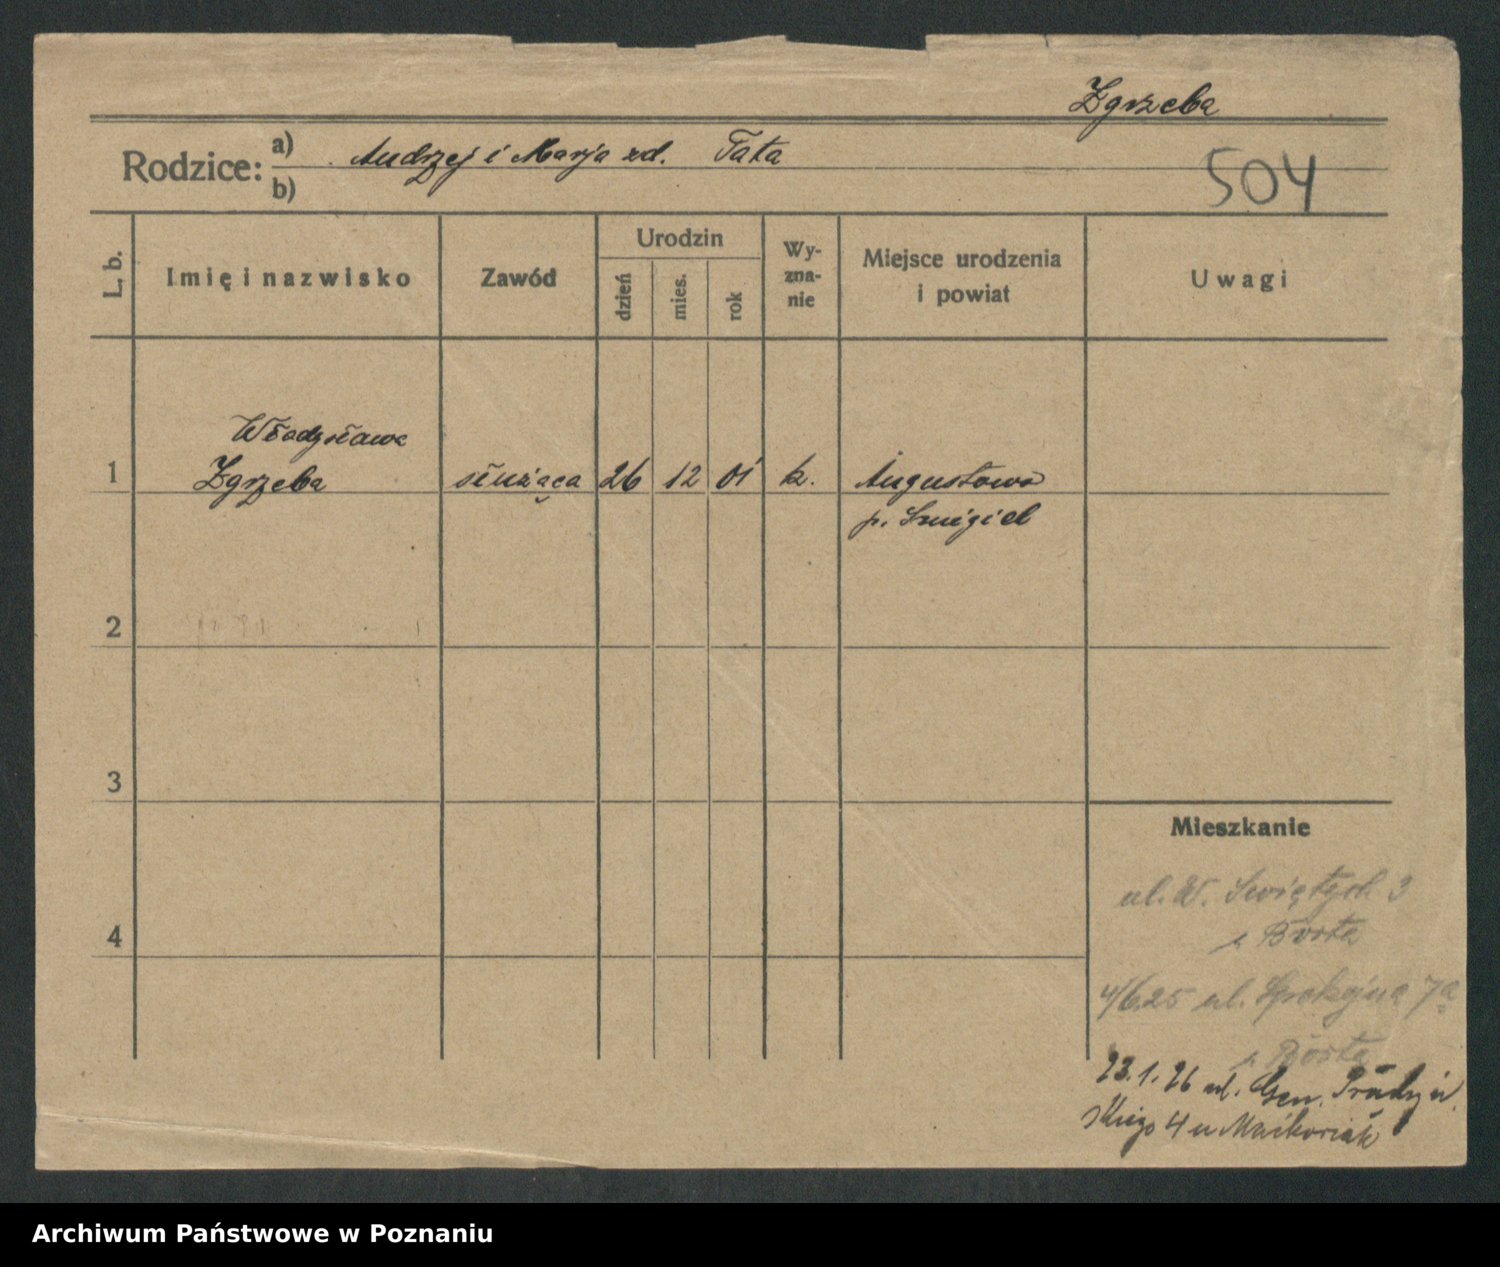 Zgrzeba
Rodzice: a) Andrzej i Marja zd. Tata
b)
504
L. b.
Imię i nazwisko
Zawód
Urodzin
dzień
mies.
rok
Wy-
zna-
nie
Miejsce urodzenia
i powiat
Uwagi
Władysława
1 Zgrzeba służąca 26 12 01 k. Augustowo
p. Śmigiel
2
3
4
Mieszkanie
ul. W. Świętych 3
u
4/6.25 ul. Spokojna 7a
u
23.1.26 ul. Gen. Prądzyń
skiego 4 u
Archiwum Państwowe w Poznaniu